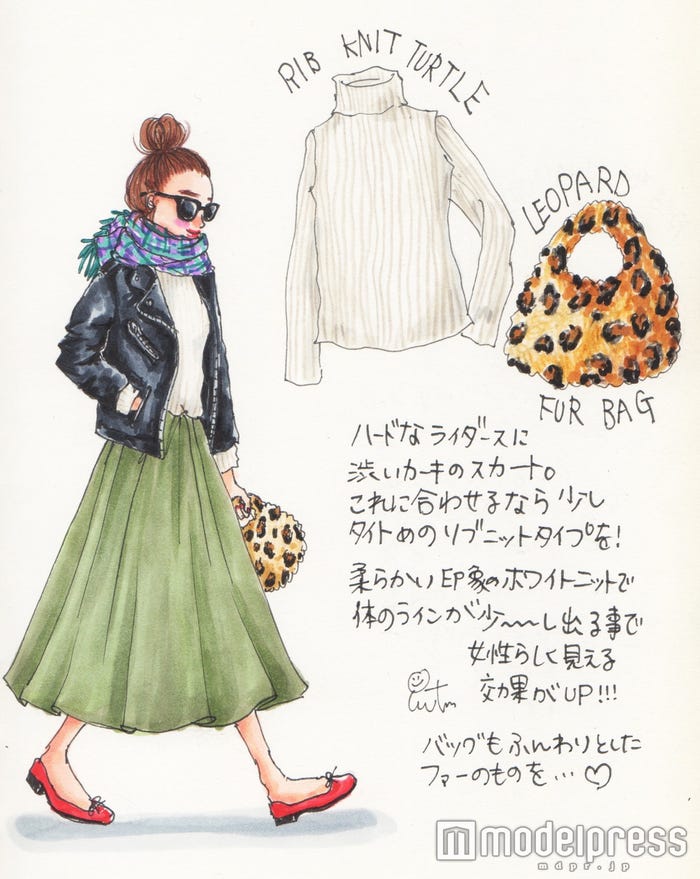 RIB KNIT TURTLE
LEOPARD
FUR BAG
ハードなライダースに
渋いカーキのスカート。
これに合わせるなら少し
タイトめのリブニットタイプを!
柔らかい印象のホワイトニットで
体のラインが少〜〜〜し出る事で
女性らしく見える
効果がUP!!!
バッグもふんわりとした
ファーのものを…♡
modelpress
mdpr.jp